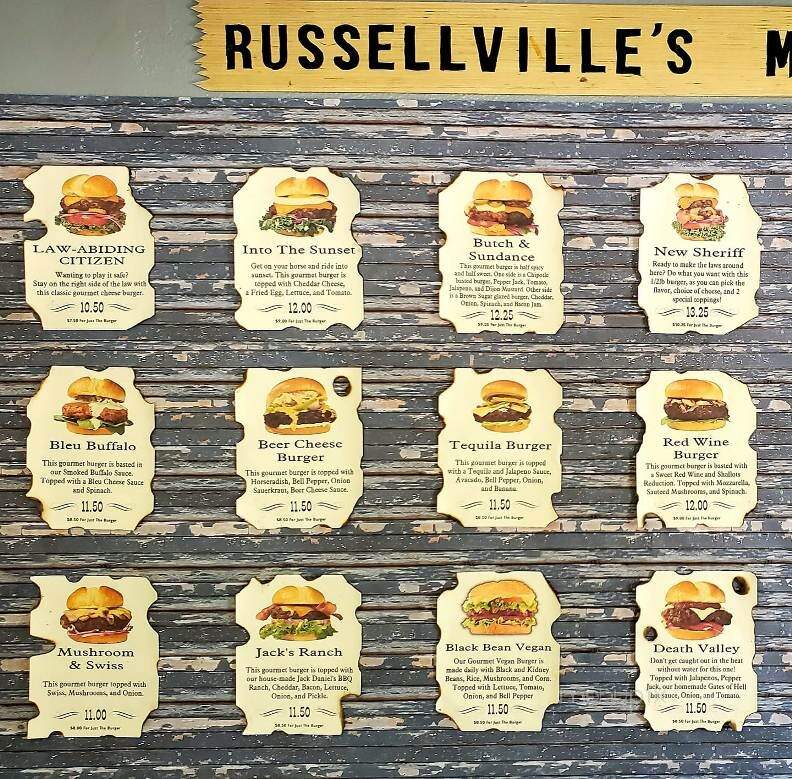 RUSSELLVILLE'S M
LAW-ABIDING
CITIZEN
Wanting to play it safe?
Stay on the right side of the law with
this classic gourmet cheese burger.
10.50
$7.50 For Just The Burger
Into The Sunset
Get on your horse and ride into
sunset. This gourmet burger is
topped with Cheddar Cheese,
a Fried Egg, Lettuce, and Tomato.
12.00
$9.00 For Just The Burger
Butch &
Sundance
This gourmet burger is half spicy
and half sweet. One side is a Chipotle
basted burger, Pepper Jack, Tomato,
Jalapeno, and Dijon Mustard. Other side
is a Brown Sugar glazed burger, Cheddar,
Onion, Spinach, and Bacon Jam.
12.25
$9.25 For Just The Burger
New Sheriff
Ready to make the laws around
here? Do what you want with this
1/2lb burger, as you can pick the
flavor, choice of cheese, and 2
special toppings!
13.25
$10.25 For Just The Burger
Bleu Buffalo
This gourmet burger is basted in
our Smoked Buffalo Sauce.
Topped with a Bleu Cheese Sauce
and Spinach.
11.50
$8.50 For Just The Burger
Beer Cheese
Burger
This gourmet burger is topped with
Horseradish, Bell Pepper, Onion
Sauerkraus, Beer Cheese Sauce.
11.50
$8.50 For Just The Burger
Tequila Burger
This gourmet burger is topped
with a Tequila and Jalapeno Sauce,
Avacado, Bell Pepper, Onion,
and Banana.
11.50
$8.50 For Just The Burger
Red Wine
Burger
This gourmet burger is basted with
a Sweet Red Wine and Shallots
Reduction. Topped with Mozzarella,
Sauteed Mushrooms, and Spinach.
12.00
$9.00 For Just The Burger
Mushroom
& Swiss
This gourmet burger topped with
Swiss, Mushrooms, and Onion.
11.00
$8.00 For Just The Burger
Jack's Ranch
This gourmet burger is topped with
our house-made Jack Daniel's BBQ
Ranch, Cheddar, Bacon, Lettuce,
Onion, and Pickle.
11.50
$8.50 For Just The Burger
Black Bean Vegan
Our Gourmet Vegan Burger is
made daily with Black and Kidney
Beans, Rice, Mushrooms, and Corn.
Topped with Lettuce, Tomato,
Onion, and Bell Pepper
11.50
$8.50 For Just The Burger
Death Valley
Don't get caught out in the heat
without water for this one!
Topped with Jalapenos, Pepper
Jack, our homemade Gates of Hell
hot sauce, Onion, and Tomato.
11.50
$8.50 For Just The Burger